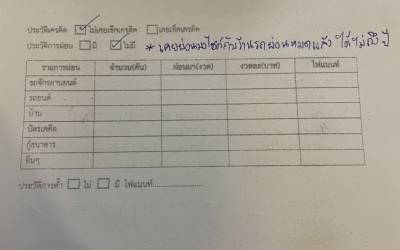 ประวัติเครดิต ☑ ไม่เคยเช็คเครดิต ☐ เคยเช็คเครดิต
ประวัติการผ่อน ☐ มี ☑ ไม่มี * เคยผ่อนมอไซร์กับร้านรถผ่อนหมดแล้ว ได้ไม่ถึงปี
รายการผ่อน จำนวน(คัน) ผ่อนมา(งวด) งวดละ(บาท) ไฟแนนท์
รถจักรยานยนต์
รถยนต์
บ้าน
บัตรเคดิต
กู้ธนาคาร
อื่นๆ
ประวัติการค้ำ ☐ ไม่ ☐ มี ไฟแนนท์......................